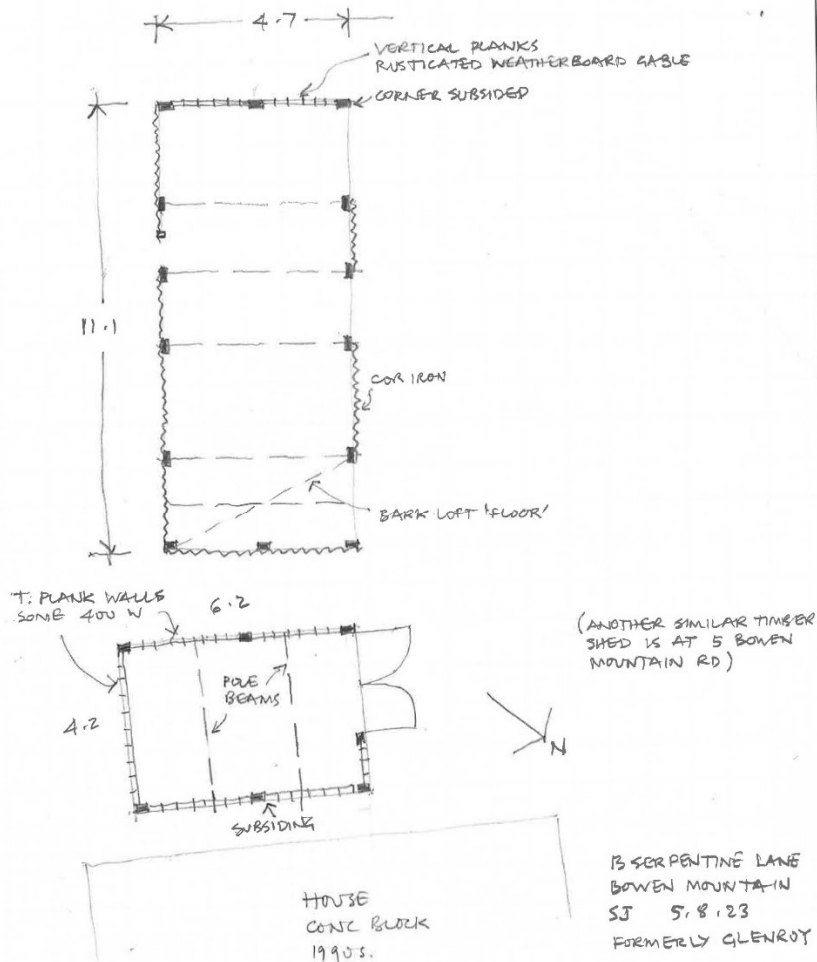 4.7
VERTICAL PLANKS
RUSTICATED WEATHERBOARD GABLE
CORNER SUBSIDED
11.1
COR IRON
BARK LOFT 'FLOOR'
T. PLANK WALLS
SOME 400 W
6.2
(ANOTHER SIMILAR TIMBER
SHED IS AT 5 BOWEN
MOUNTAIN RD)
POLE
BEAMS
4.2
N
SUBSIDING
HOUSE
CONC BLOCK
1990S.
13 SERPENTINE LANE
BOWEN MOUNTAIN
SJ 5.8.23
FORMERLY GLENROY